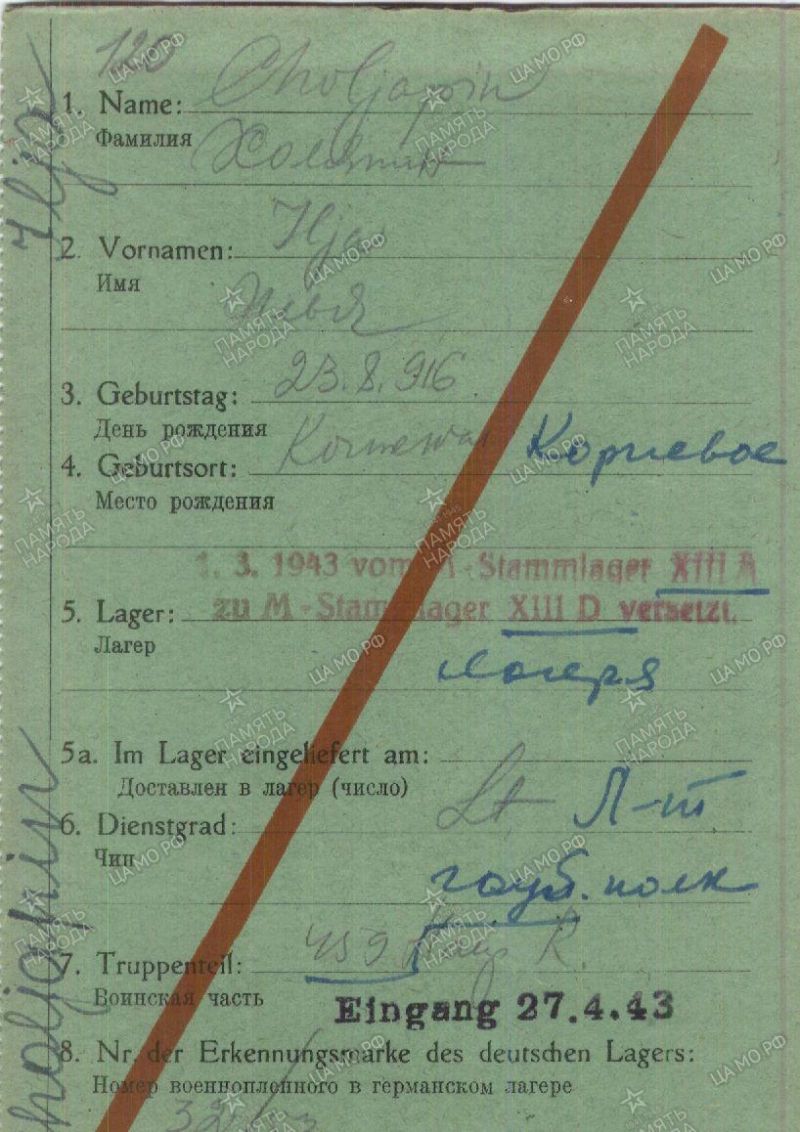 120
1. Name: Choljapin
Фамилия Холяпин
2. Vornamen: Ilja
Имя Илья
3. Geburtstag: 23.8.916
День рождения
4. Geburtsort: Корневое
Место рождения
1. 3. 1943 vom M-Stammlager XIII A
5. Lager: zu M-Stammlager XIII D versetzt.
Лагер лагеря
5a. Im Lager eingeliefert am:
Доставлен в лагер (число)
6. Dienstgrad: Lt Л-т
Чин
гауб. полк
7. Truppenteil: 459 Haub R.
Воинская часть
Eingang 27.4.43
8. Nr. der Erkennungsmarke des deutschen Lagers:
Номер военнопленного в германском лагере
Choljapin Ilja
ПАМЯТЬ НАРОДА
ЦА МО.РФ